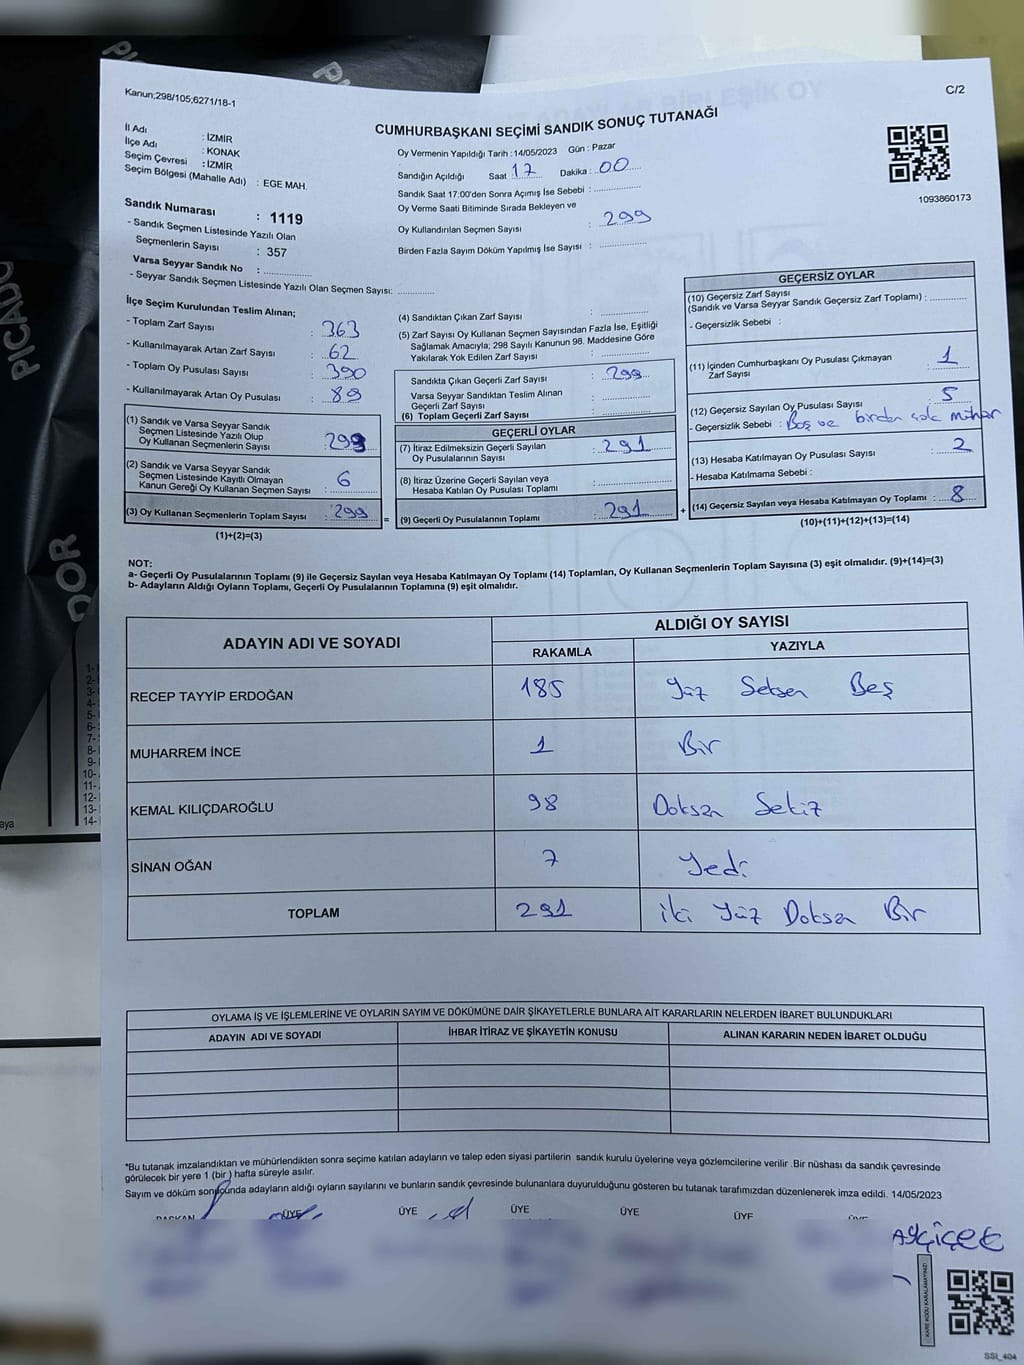 Kanun;298/105;6271/18-1
C/2
CUMHURBAŞKANI SEÇİMİ SANDIK SONUÇ TUTANAĞI
İl Adı : İZMİR
İlçe Adı : KONAK
Seçim Çevresi : İZMİR
Seçim Bölgesi (Mahalle Adı) : EGE MAH.
Oy Vermenin Yapıldığı Tarih : 14/05/2023 Gün : Pazar
Sandığın Açıldığı Saat 17 Dakika : 00
Sandık Saat 17:00'den Sonra Açımış İse Sebebi :
Oy Verme Saati Bitiminde Sırada Bekleyen ve
Oy Kullandırılan Seçmen Sayısı : 299
Birden Fazla Sayım Döküm Yapılmış İse Sayısı :
1093860173
Sandık Numarası : 1119
- Sandık Seçmen Listesinde Yazılı Olan
Seçmenlerin Sayısı : 357
Varsa Seyyar Sandık No :
- Seyyar Sandık Seçmen Listesinde Yazılı Olan Seçmen Sayısı:
İlçe Seçim Kurulundan Teslim Alınan;
- Toplam Zarf Sayısı : 363
- Kullanılmayarak Artan Zarf Sayısı : 62
- Toplam Oy Pusulası Sayısı : 390
- Kullanılmayarak Artan Oy Pusulası : 89
(1) Sandık ve Varsa Seyyar Sandık
Seçmen Listesinde Yazılı Olup
Oy Kullanan Seçmenlerin Sayısı :
(2) Sandık ve Varsa Seyyar Sandık
Seçmen Listesinde Kayıtlı Olmayan
Kanun Gereği Oy Kullanan Seçmen Sayısı : 6
(3) Oy Kullanan Seçmenlerin Toplam Sayısı : 299
(1)+(2)=(3)
(4) Sandıktan Çıkan Zarf Sayısı :
(5) Zarf Sayısı Oy Kullanan Seçmen Sayısından Fazla İse, Eşitliği
Sağlamak Amacıyla; 298 Sayılı Kanunun 98. Maddesine Göre
Yakılarak Yok Edilen Zarf Sayısı :
Sandıkta Çıkan Geçerli Zarf Sayısı : 299
Varsa Seyyar Sandıktan Teslim Alınan
Geçerli Zarf Sayısı :
(6) Toplam Geçerli Zarf Sayısı :
GEÇERLİ OYLAR
(7) İtiraz Edilmeksizin Geçerli Sayılan
Oy Pusulalarının Sayısı : 291
(8) İtiraz Üzerine Geçerli Sayılan veya
Hesaba Katılan Oy Pusulası Toplamı :
= (9) Geçerli Oy Pusulalarının Toplamı : 291 +
GEÇERSİZ OYLAR
(10) Geçersiz Zarf Sayısı
(Sandık ve Varsa Seyyar Sandık Geçersiz Zarf Toplamı) :
- Geçersizlik Sebebi :
(11) İçinden Cumhurbaşkanı Oy Pusulası Çıkmayan
Zarf Sayısı : 1
(12) Geçersiz Sayılan Oy Pusulası Sayısı : 5
- Geçersizlik Sebebi : Boş ve birden çok mühür
(13) Hesaba Katılmayan Oy Pusulası Sayısı : 2
- Hesaba Katılmama Sebebi :
(14) Geçersiz Sayılan veya Hesaba Katılmayan Oy Toplamı : 8
(10)+(11)+(12)+(13)=(14)
NOT:
a- Geçerli Oy Pusulalarının Toplamı (9) ile Geçersiz Sayılan veya Hesaba Katılmayan Oy Toplamı (14) Toplamları, Oy Kullanan Seçmenlerin Toplam Sayısına (3) eşit olmalıdır. (9)+(14)=(3)
b- Adayların Aldığı Oyların Toplamı, Geçerli Oy Pusulalarının Toplamına (9) eşit olmalıdır.
ADAYIN ADI VE SOYADI
ALDIĞI OY SAYISI
RAKAMLA YAZIYLA
RECEP TAYYİP ERDOĞAN 185 Yüz Seksen Beş
MUHARREM İNCE 1 Bir
KEMAL KILIÇDAROĞLU 98 Doksan Sekiz
SİNAN OĞAN 7 Yedi
TOPLAM 291 İki Yüz Doksan Bir
OYLAMA İŞ VE İŞLEMLERİNE VE OYLARIN SAYIM VE DÖKÜMÜNE DAİR ŞİKAYETLERLE BUNLARA AİT KARARLARIN NELERDEN İBARET BULUNDUKLARI
ADAYIN ADI VE SOYADI İHBAR İTİRAZ VE ŞİKAYETİN KONUSU ALINAN KARARIN NEDEN İBARET OLDUĞU
*Bu tutanak imzalandıktan ve mühürlendikten sonra seçime katılan adayların ve talep eden siyasi partilerin sandık kurulu üyelerine veya gözlemcilerine verilir .Bir nüshası da sandık çevresinde
görülecek bir yere 1 (bir ) hafta süreyle asılır.
Sayım ve döküm sonucunda adayların aldığı oyların sayılarını ve bunların sandık çevresinde bulunanlara duyurulduğunu gösteren bu tutanak tarafımızdan düzenlenerek imza edildi. 14/05/2023
BAŞKAN ÜYE ÜYE ÜYE ÜYE ÜYE ÜYE
KARE KODU KARALAMAYINIZ!
SSI_404
PICADOR
1-
2-
3-
4-
5-
6-
7-
8-
9-
10-
11-
12-
13-
14-